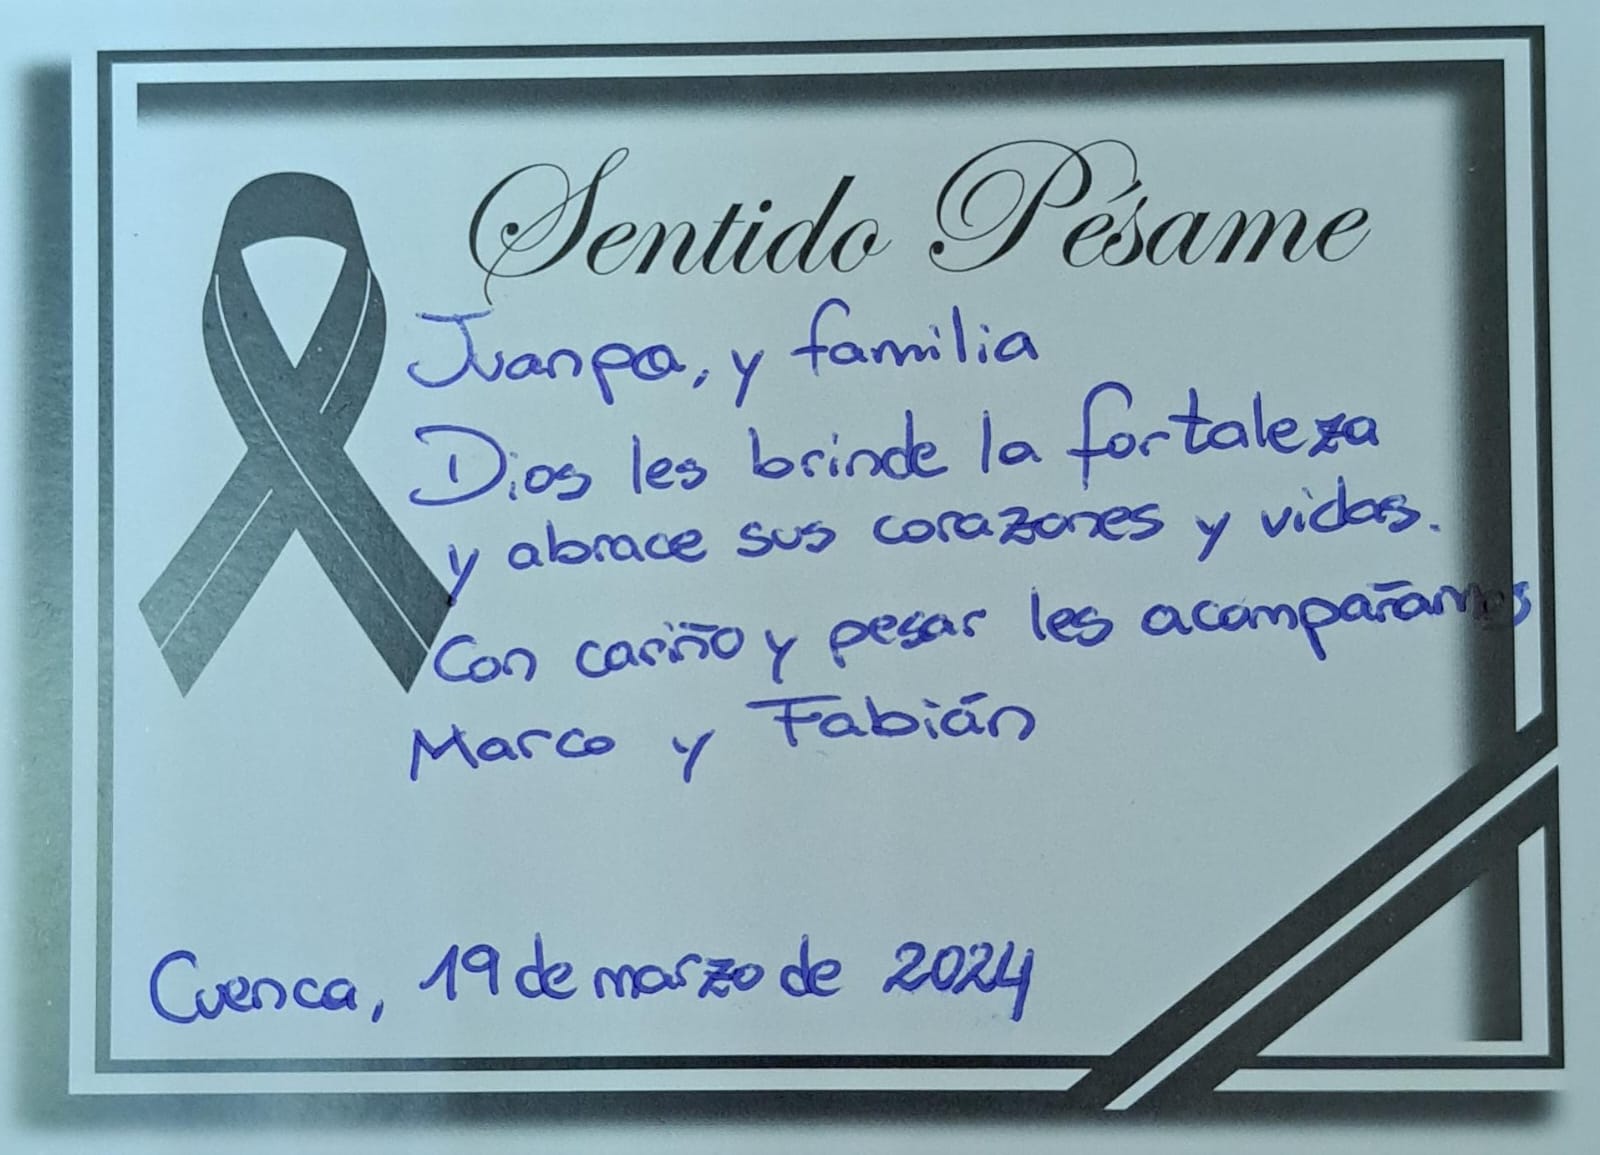 Sentido Pésame
Juanpa, y familia
Dios les brinde la fortaleza
y abrace sus corazones y vidas.
Con cariño y pesar les acompañamos
Marco y Fabián
Cuenca, 19 de marzo de 2024